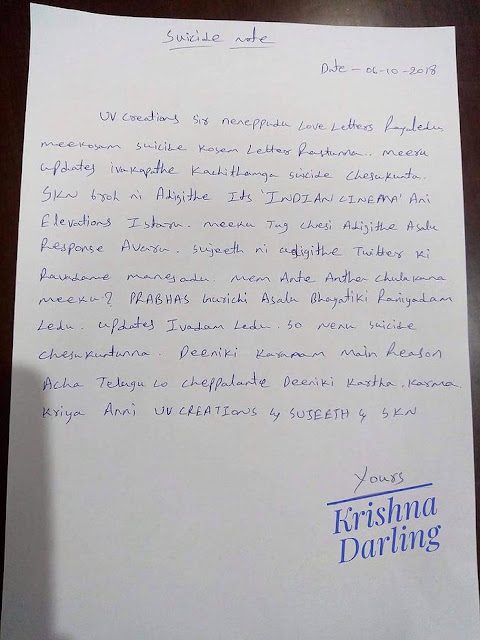 Suicide note
Date - 06-10-2018
UV Creations Sir neneppudu Love Letters Rayaledu,
meekosam suicide kosam Letter Rastunna.. meeru
updates ivakapothe Kachithamga suicide Chesukunta.
SKN broh ni Adigithe Its 'INDIAN CINEMA' Ani
Elevations Istaru. meeku Tag Chesi Adigithe Asalu
Response Avaru. Sujeeth ni adigithe Twitter ki
Ravadame manesadu. mem Ante Antha Chulakana
meeku? PRABHAS Gurichi Asalu Bhayatiki Raniyadam
Ledu. updates Ivadam Ledu. So nenu suicide
Chesukuntunna. Deeniki Karanam main Reason
Acha Telugu Lo Cheppalante Deeniki Kartha, Karma
Kriya Anni UV CREATIONS & SUJEETH & SKN
Yours
Krishna
Darling